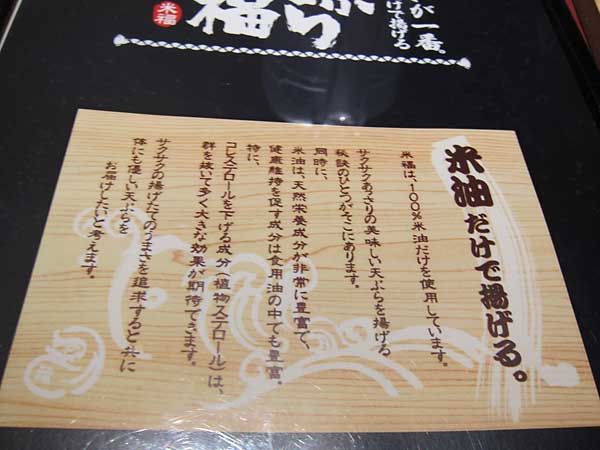 が一番。
けで揚げる
福
米福
米油だけで揚げる。
米福は、100%米油だけを使用しています。
サクサクあっさりの美味しい天ぷらを揚げる
秘訣のひとつがそこにあります。
同時に、
米油は、天然栄養成分が非常に豊富で、
健康維持を促す成分は食用油の中でも豊富。
特に、
コレステロールを下げる成分(植物ステロール)は、
群を抜いて多く大きな効果が期待できます。
サクサクの揚げたてのうまさを追求すると共に
体にも優しい天ぷらを
お届けしたいと考えます。